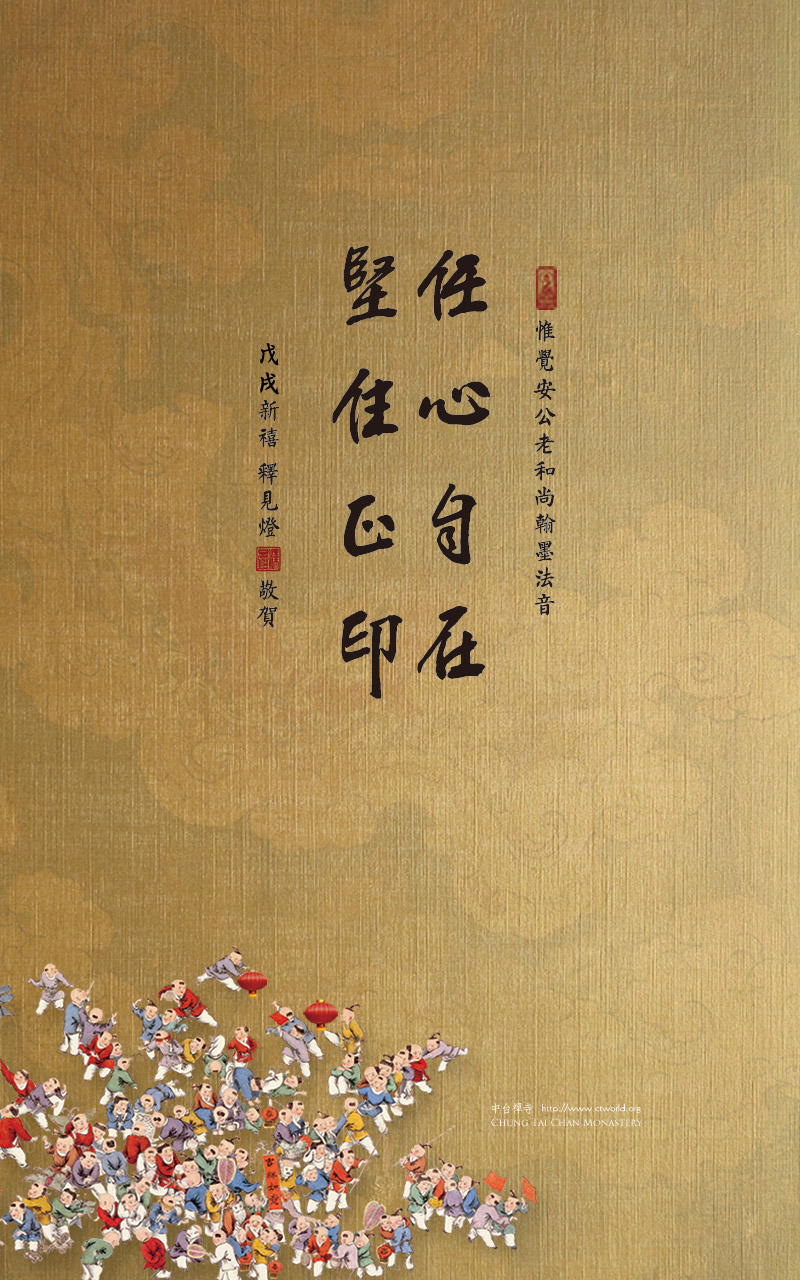 惟覺安公老和尚翰墨法音
任心自在
堅住正印
戊戌新禧 釋見燈 敬賀
中台禪寺 http://www.ctworld.org
CHUNG TAI CHAN MONASTERY
吉祥如意